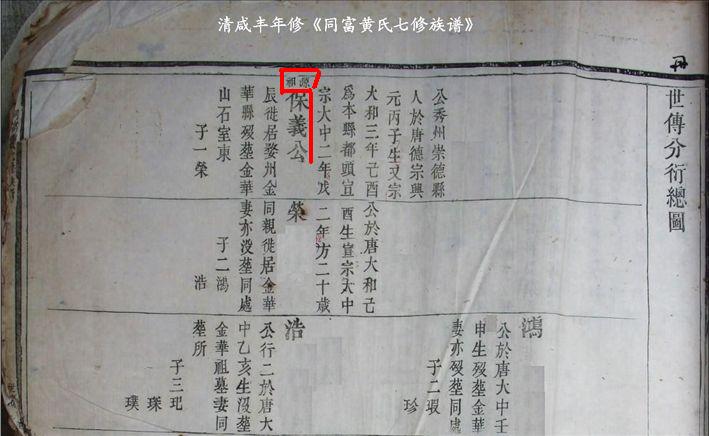 清咸丰年修《同富黄氏七修族谱》
世傳分衍總圖
公秀州崇德縣
人於唐德宗興
元丙子生文宗
大和三年己酉
爲本縣都頭宣
宗大中二年戊
源祖
保義公
辰徙居婺州金
華縣歿塟金華
山石室東
子一榮
公於唐大和己
酉生宣宗大中
二年方二十歲
榮
同親徙居金華
妻亦没塟同處
子二鴻
浩
鴻
公於唐大中壬
申生歿塟金華
妻亦歿塟同處
子二瑕
珍
浩
公行二於唐大
中乙亥生沒塟
金華祖墓妻同
塟所
子三玘
琛
璞